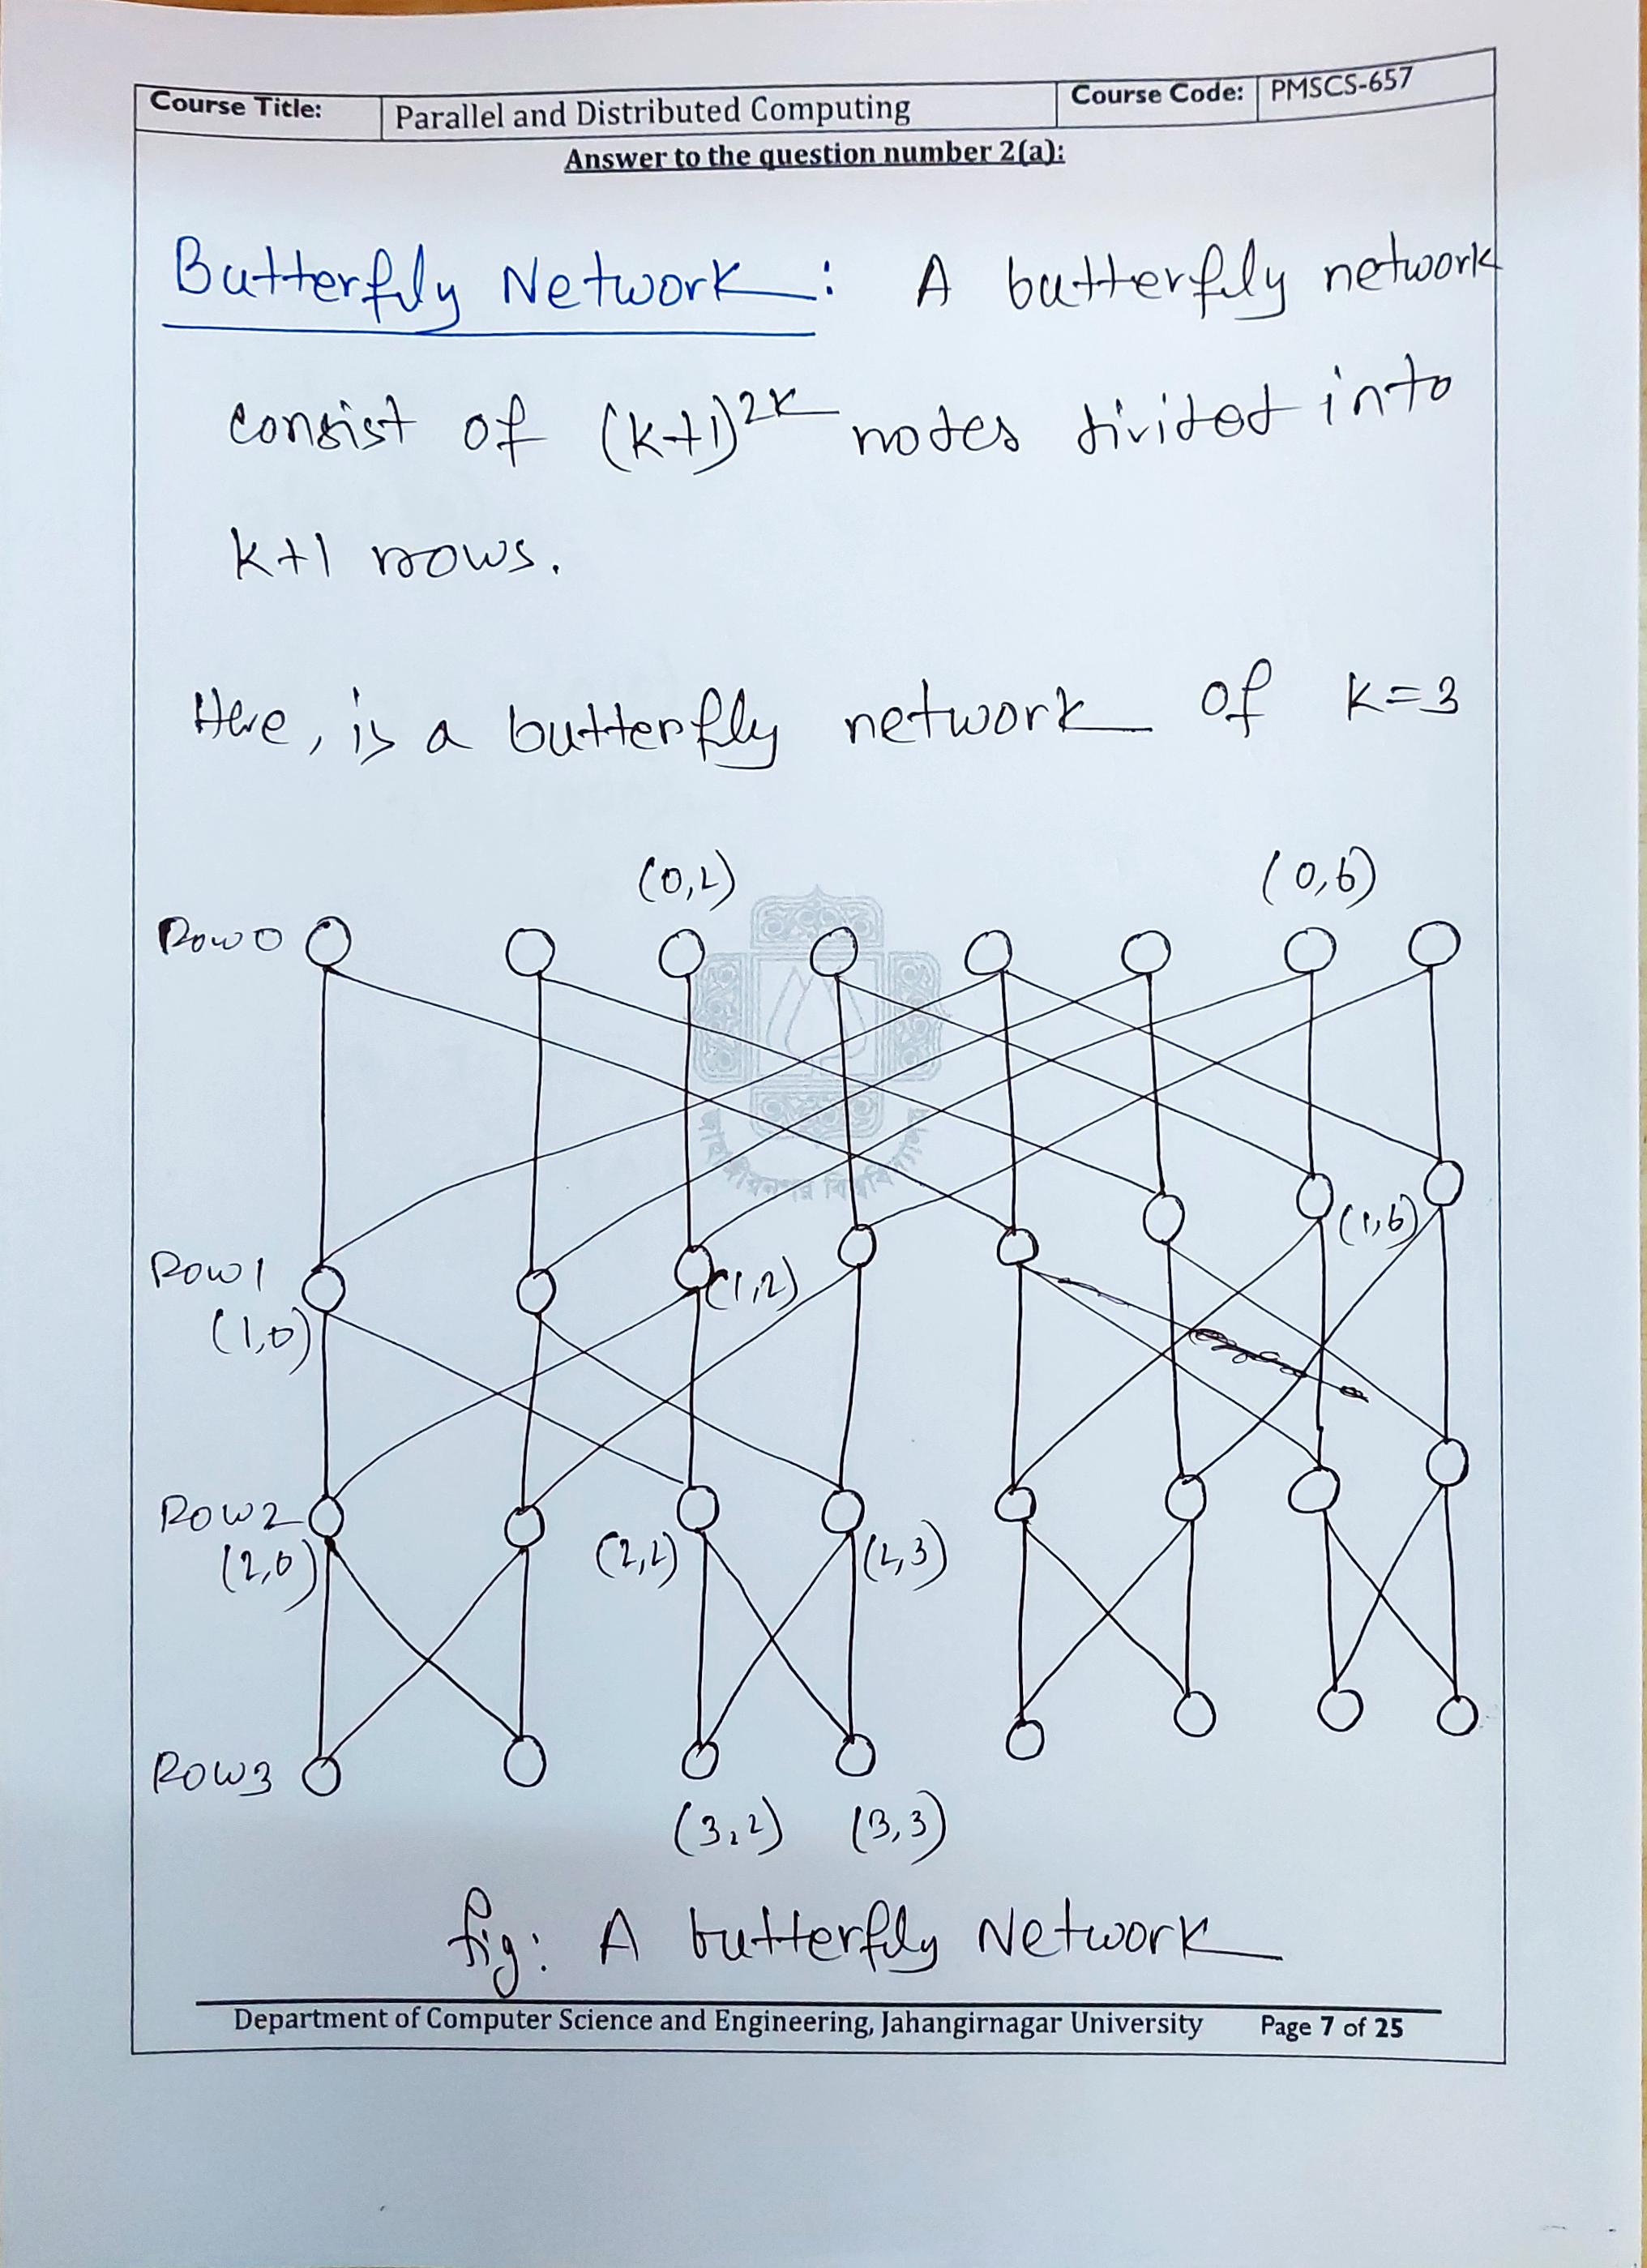 Course Title: Parallel and Distributed Computing Course Code: PMSCS-657
Answer to the question number 2(a):
Butterfly Network : A butterfly network
consist of (k+1)^2K nodes divided into
k+1 rows.
Here, is a butterfly network of K=3
(0,2) (0,6)
Row 0
Row 1
(1,0) (1,2) (1,6)
Row 2
(2,0) (2,2) (2,3)
Row 3
(3,2) (3,3)
fig: A butterfly Network
Department of Computer Science and Engineering, Jahangirnagar University Page 7 of 25